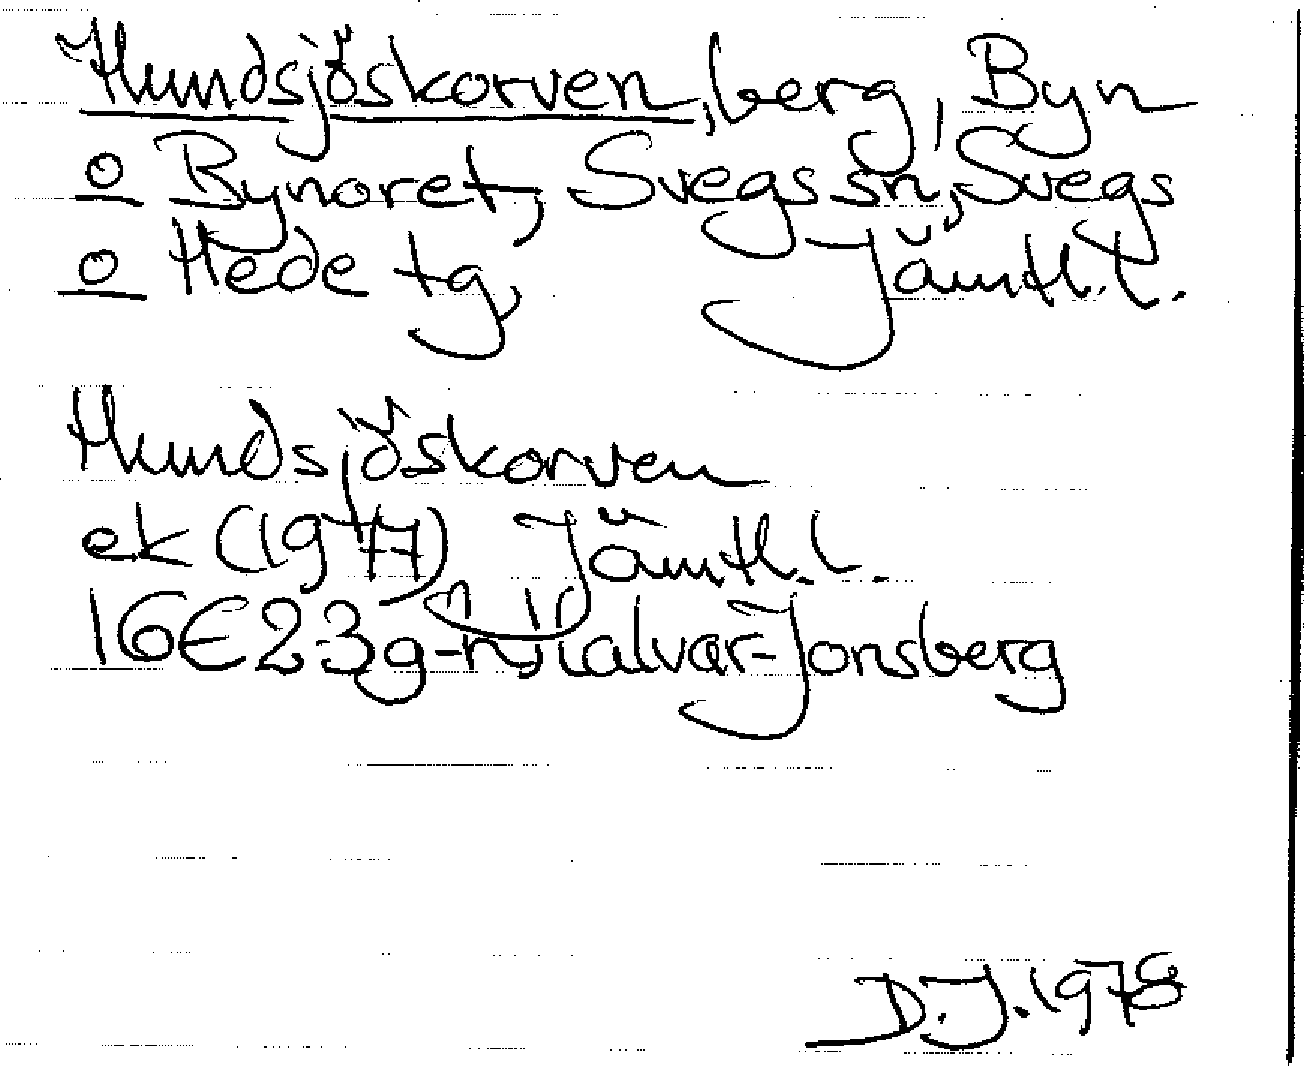 Hundsjöskorven, berg, Byn
o Bynoret, Svegs sn, Svegs
o Hede tg, Jämtl. l.
Hundsjöskorven
ek (1977) Jämtl. l.
16E 2-3 g-h, Kalvar-Jonsberg
D.J. 1978